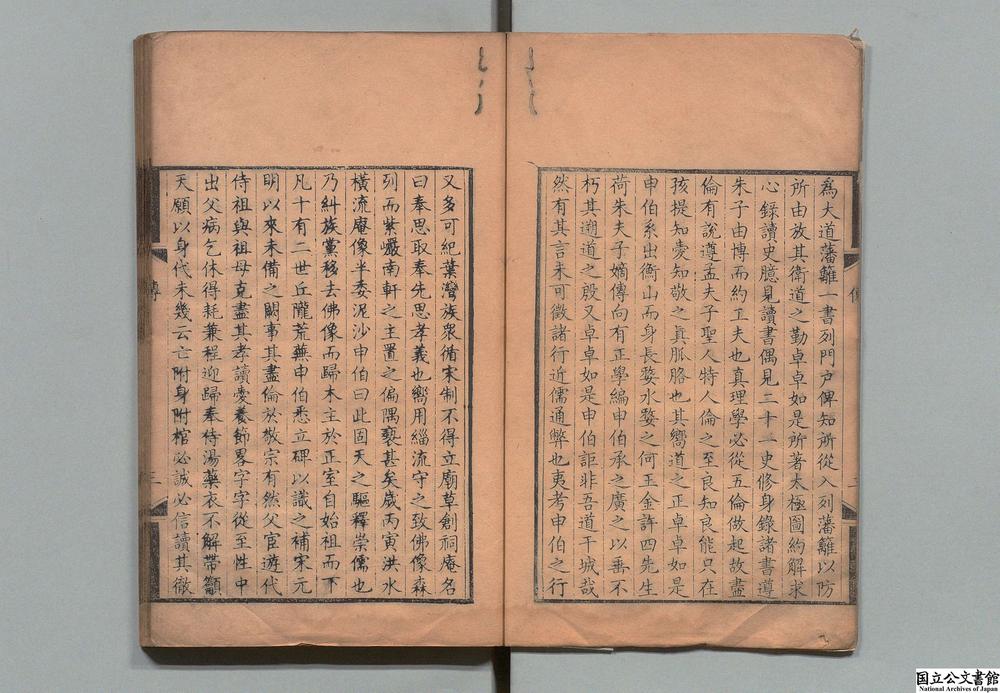 為大道藩籬一書列門户俾知所從入列藩籬以防
所由放其衛道之勤卓卓如是所著太極圖約解求
心錄讀史臆見讀書偶見二十一史修身錄諸書遵
朱子由博而約工夫也真理學必從五倫做起故盡
倫有說遵孟夫子聖人特人倫之至良知良能只在
孩提知愛知敬之真脈胳也其嚮道之正卓卓如是
申伯系出衡山而身長婺水婺之何王金許四先生
荷朱夫子嫡傳向有正學編申伯承之廣之以垂不
朽其遡道之殷又卓卓如是申伯詎非吾道干城哉
然有其言未可徵諸行近儒通弊也夷考申伯之行
又多可紀葉灣族衆循宋制不得立廟草創祠庵名
曰奉思取奉先思孝義也嚮用緇流守之致佛像森
列而紫巖南軒之主置之偏隅褻甚矣歲丙寅洪水
橫流庵像半委泥沙申伯曰此固天之驅釋崇儒也
乃糾族黨移去佛像而歸木主於正室自始祖而下
凡十有二世丘隴荒蕪申伯悉立碑以識之補宋元
明以來未備之闕事其盡倫於敬宗有然父宦遊代
侍祖與祖母克盡其孝讀愛養節畧字字從至性中
出父病乞休得耗兼程迎歸奉侍湯藥衣不解帶籲
天願以身代未幾云亡附身附棺必誠必信讀其徵
傳
二
国立公文書館
National Archives of Japan